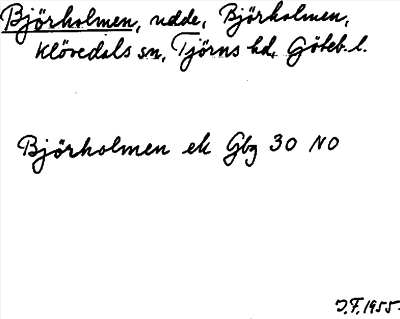 Björholmen, udde, Björholmen,
Klövedals sn, Tjörns hd, Göteb. l.
Björholmen ek Gbg 30 NO
J.F. 1955.